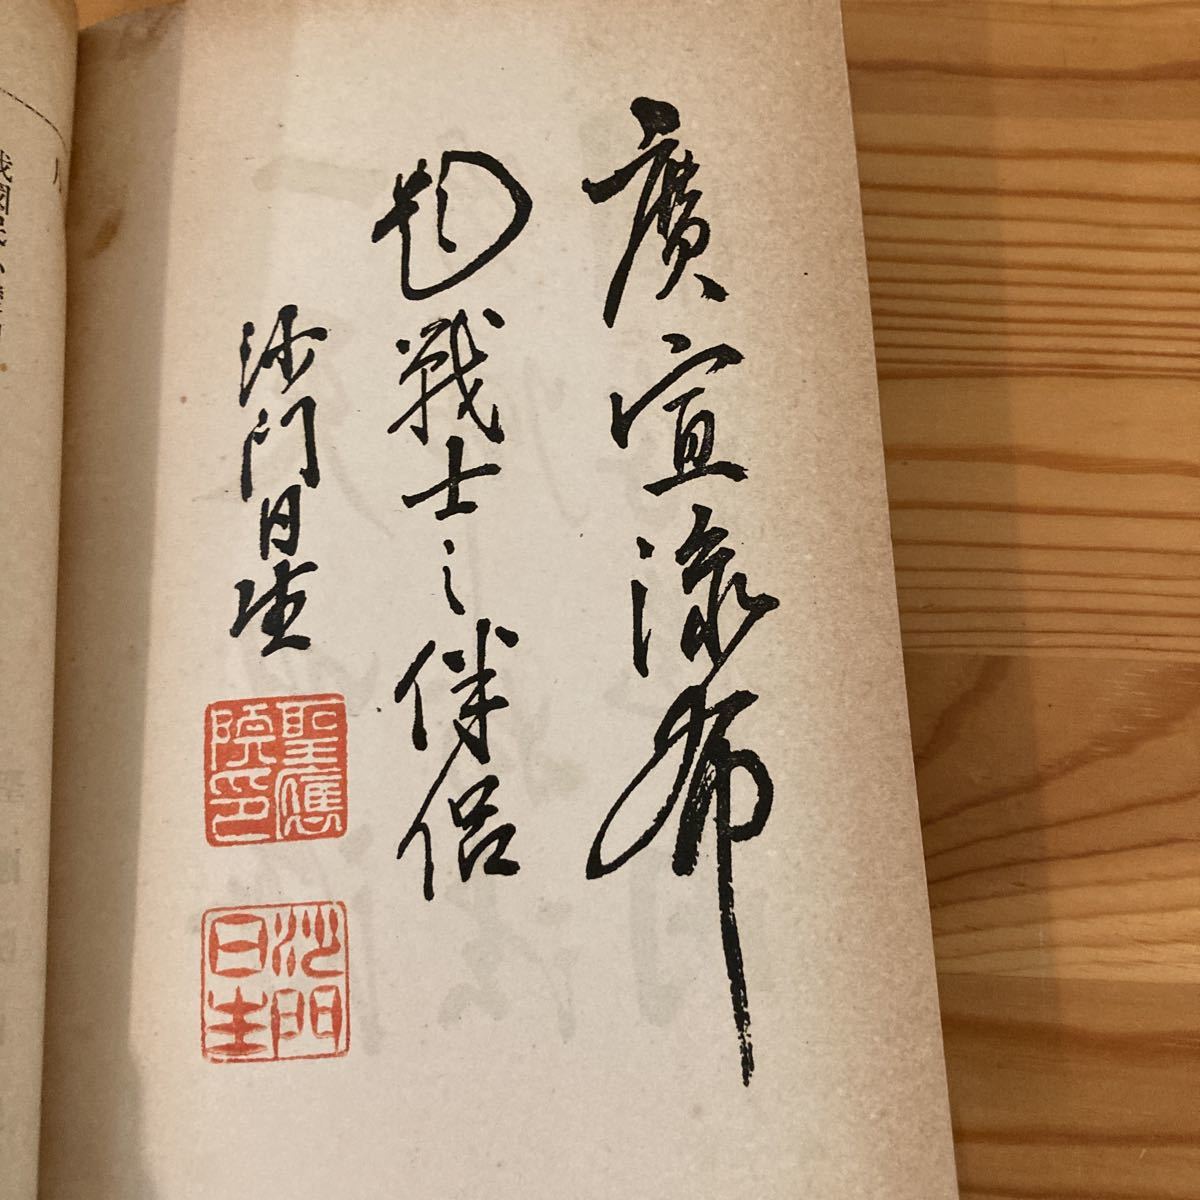 廣宣流布
題戦士之伴侶
沙門日生
聖應院印
沙門日生